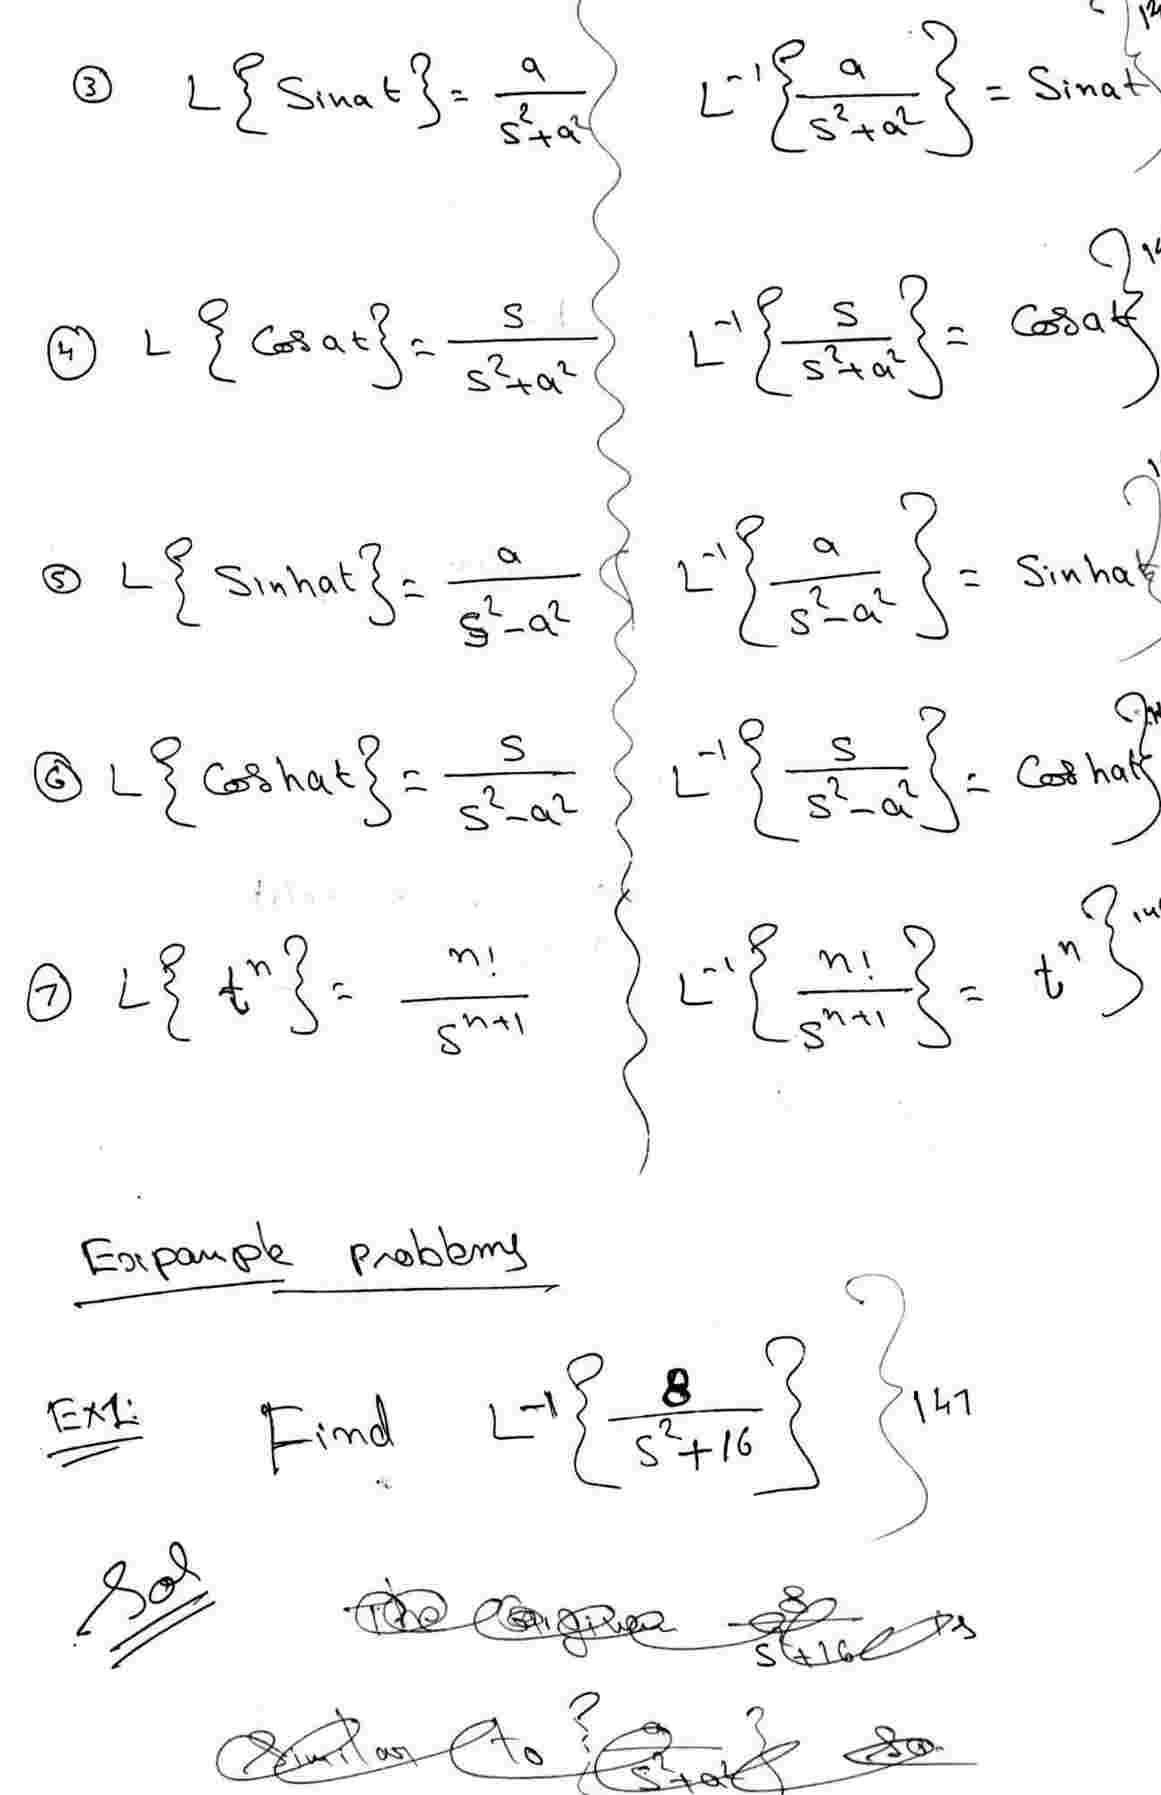 ③ L{Sinat} = a/(s²+a²) L⁻¹{a/(s²+a²)} = Sinat
④ L{Cosat} = s/(s²+a²) L⁻¹{s/(s²+a²)} = Cosat
⑤ L{Sinhat} = a/(s²-a²) L⁻¹{a/(s²-a²)} = Sinhat
⑥ L{Coshat} = s/(s²-a²) L⁻¹{s/(s²-a²)} = Coshat
⑦ L{tⁿ} = n!/sⁿ⁺¹ L⁻¹{n!/sⁿ⁺¹} = tⁿ
Example problems
EX1: Find L⁻¹{8/(s²+16)} } 147
Sol
The 8/(s²+16) is
Similar to {a/(s²+a²)} So